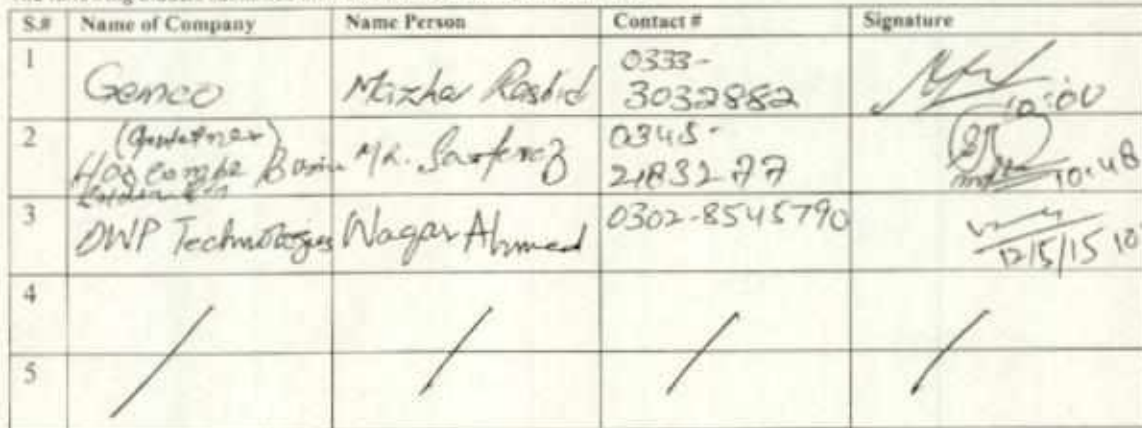 S.# Name of Company Name Person Contact # Signature
1 Gemco Mazhar Rashid 0333-
3032882
10:00
2 Mr. Sarferaz 0345-
2183277
10:48
3 DWP Technologies Waqar Ahmed 0302-8545790
12/5/15 10
4
5